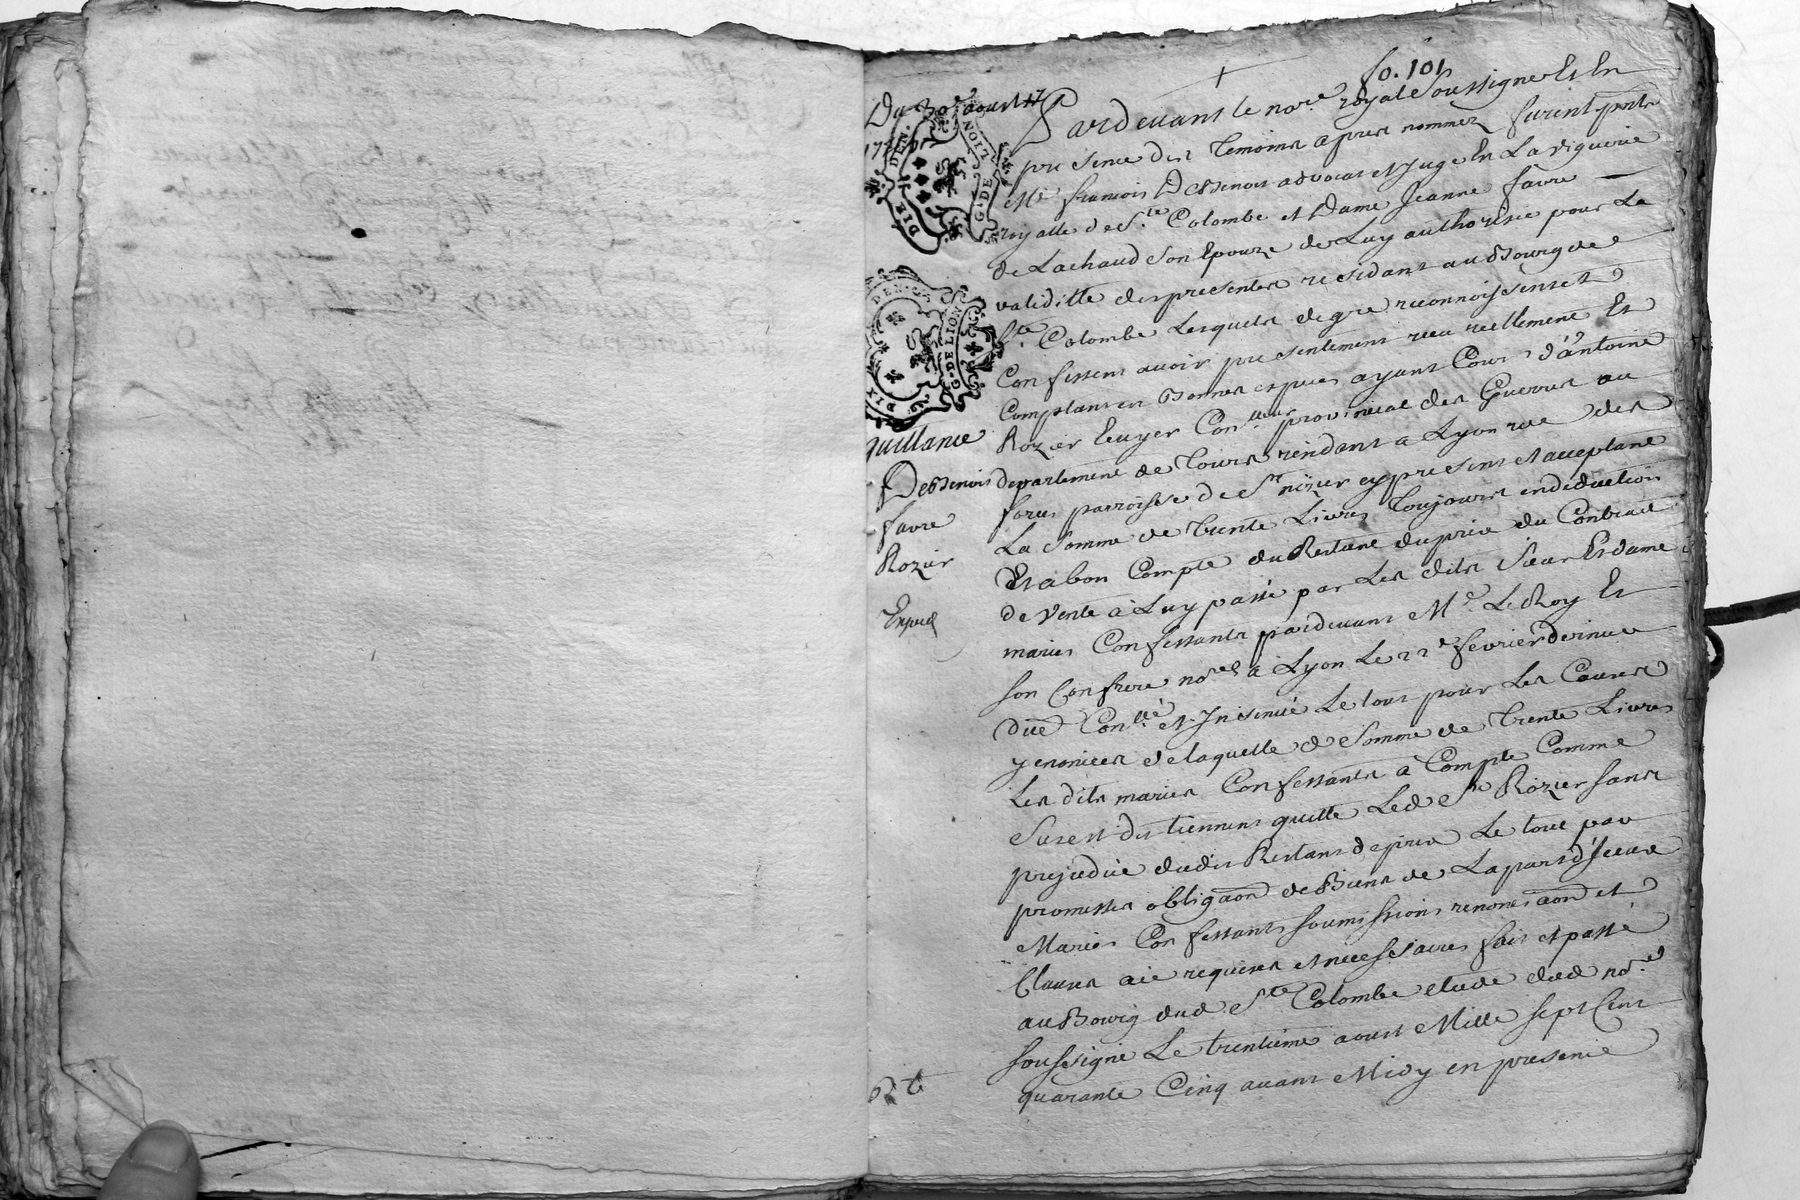 fo. 101
Du 30e aoust
1745
DIX DEN.
G. DE LION
DIX DEN.
G. DE LION
quittance
Debenoit
favre
Rozier
Exped
Pardevant le nore. royal Soussigné Et En
presence des temoins apres nommez furent pnts
Me francois Debenoit advocat et Juge En La viguerie
royalle de Ste Colombe et Dame Jeanne favre
de Lachaud Son Epouze de Luy authorisée pour La
validitté des presentes residant au Bourg de
Ste Colombe Lesquels de gré reconnoissent et
Confessent avoir presentement receu reellement Et
Comptant en Bonnes especes ayant Cours d'antoine
Rozier Ecuyer Coner. provincial des Guerres au
departement de Tours residant a Lyon rue des
forces parroisse de St nizier cy present et acceptant
La Somme de trente Livres Toujours en deduction
Et a bon Compte du Restant du prix du Contract
de Vente à Luy passé par Les dits Sieur Et dame
mariés Confessants pardevant Me. LeRoy Et
Son Confrere nores à Lyon Le 22e fevrier dernier
Düe Conllé et Insinué Le tout pour Les Causes
y enoncées de laquelle d Somme de trente Livres
Les dits mariés Confessants à Compte Comme
Sus est dit tiennent quitte Led Sr Rozier Sans
prejudice dudit Restant de prix Le tout par
promesses obligaon de Biens de La part d'Iceux
Mariés Confessants Soumissions renonciaon et
Clauses a ce requises et necessaires fait et passé
au Bourg dud Ste Colombe etude dud nore
soussigné Le trentieme aoust Mille Sept Cent
quarante Cinq avant Midy en presence